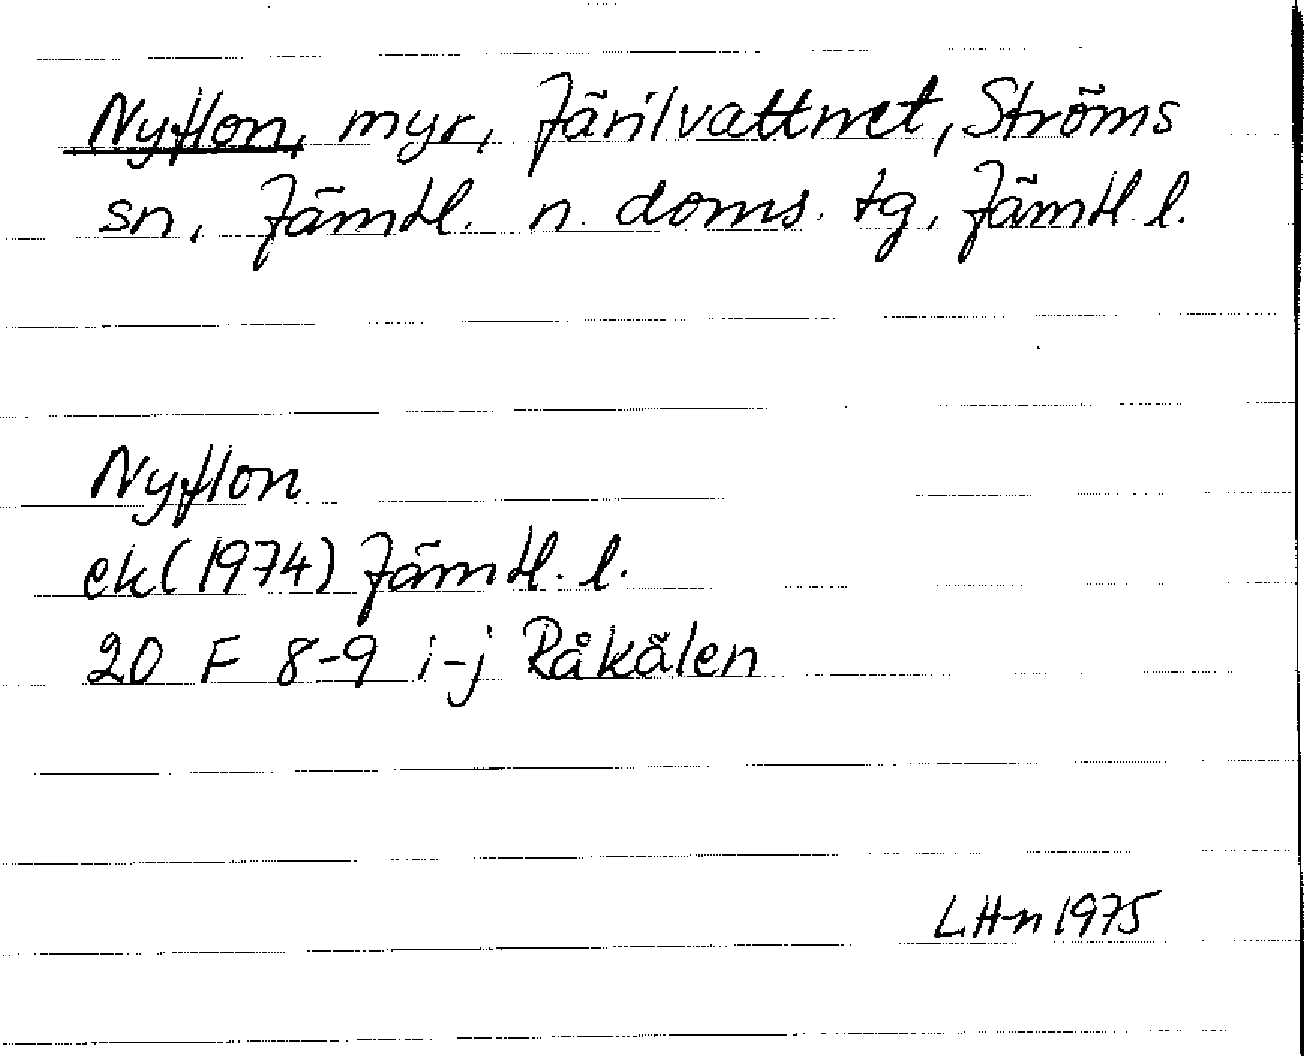 Nyflon, myr, Järilvattnet, Ströms
sn, Jämtl. n. doms. tg, Jämtl. l.
Nyflon
ek (1974) Jämtl. l.
20 F 8-9 i-j Råkälen
L.H-n 1975